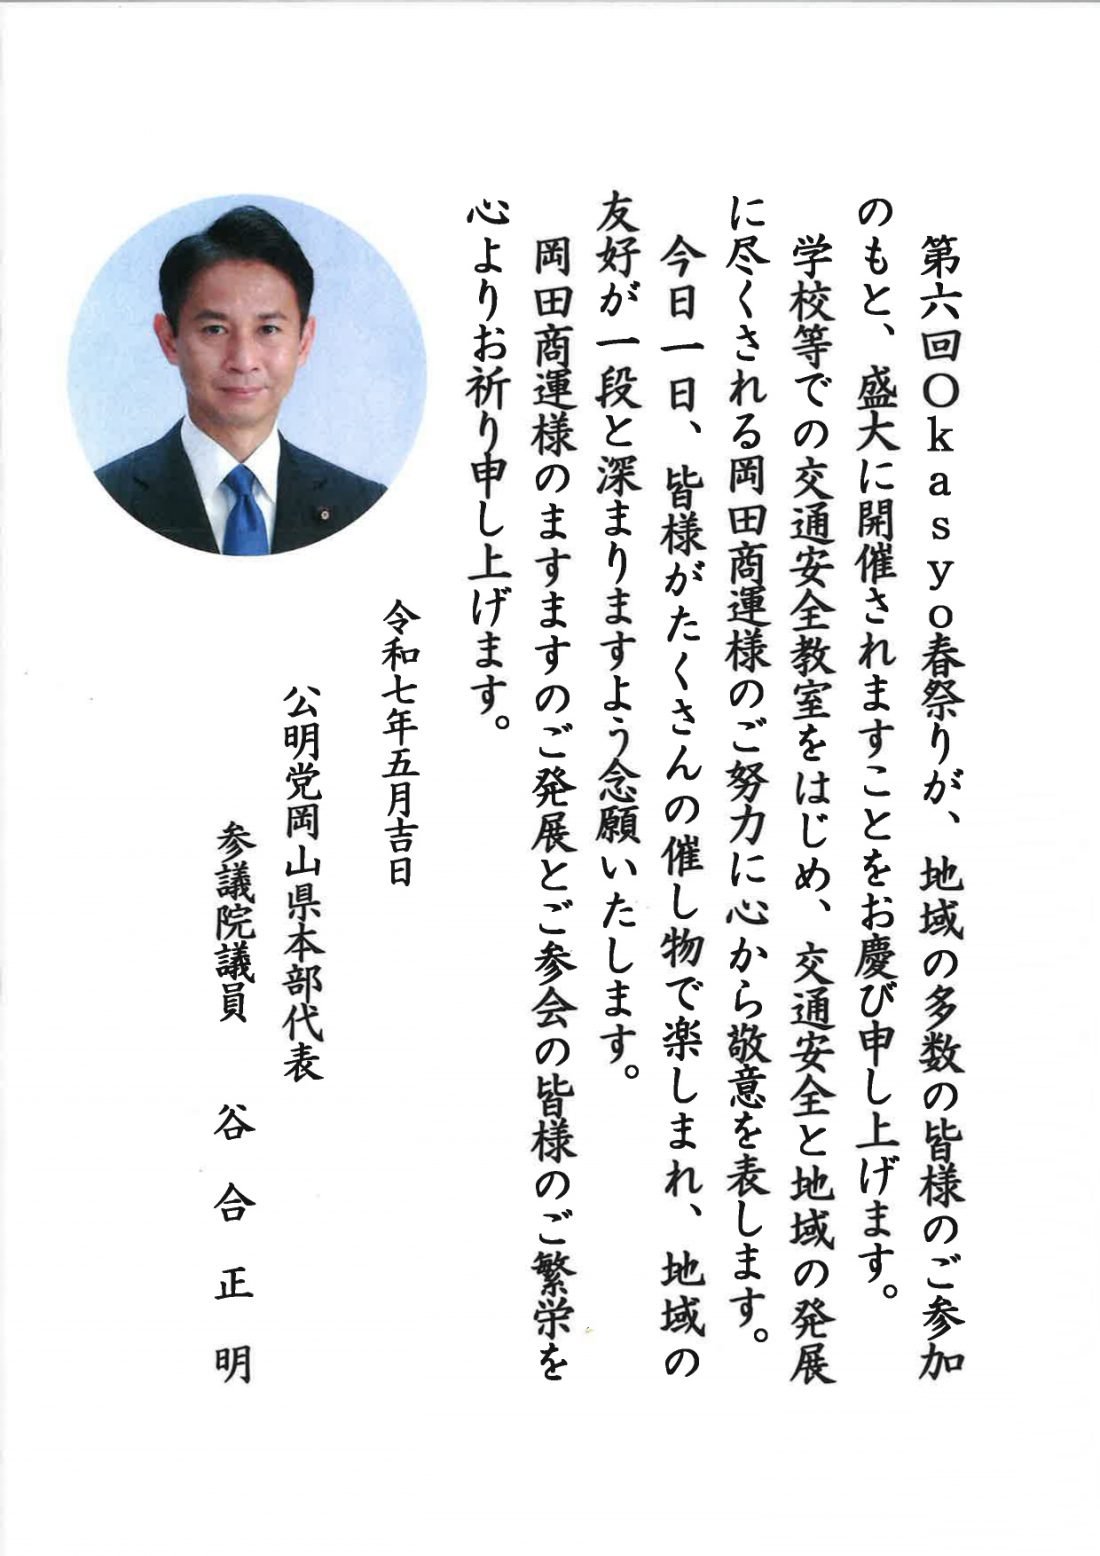 第六回Okasyo春祭りが、地域の多数の皆様のご参加
のもと、盛大に開催されますことをお慶び申し上げます。
学校等での交通安全教室をはじめ、交通安全と地域の発展
に尽くされる岡田商運様のご努力に心から敬意を表します。
今日一日、皆様がたくさんの催し物で楽しまれ、地域の
友好が一段と深まりますよう念願いたします。
岡田商運様のますますのご発展とご参会の皆様のご繁栄を
心よりお祈り申し上げます。
令和七年五月吉日
公明党岡山県本部代表
参議院議員 谷合正明